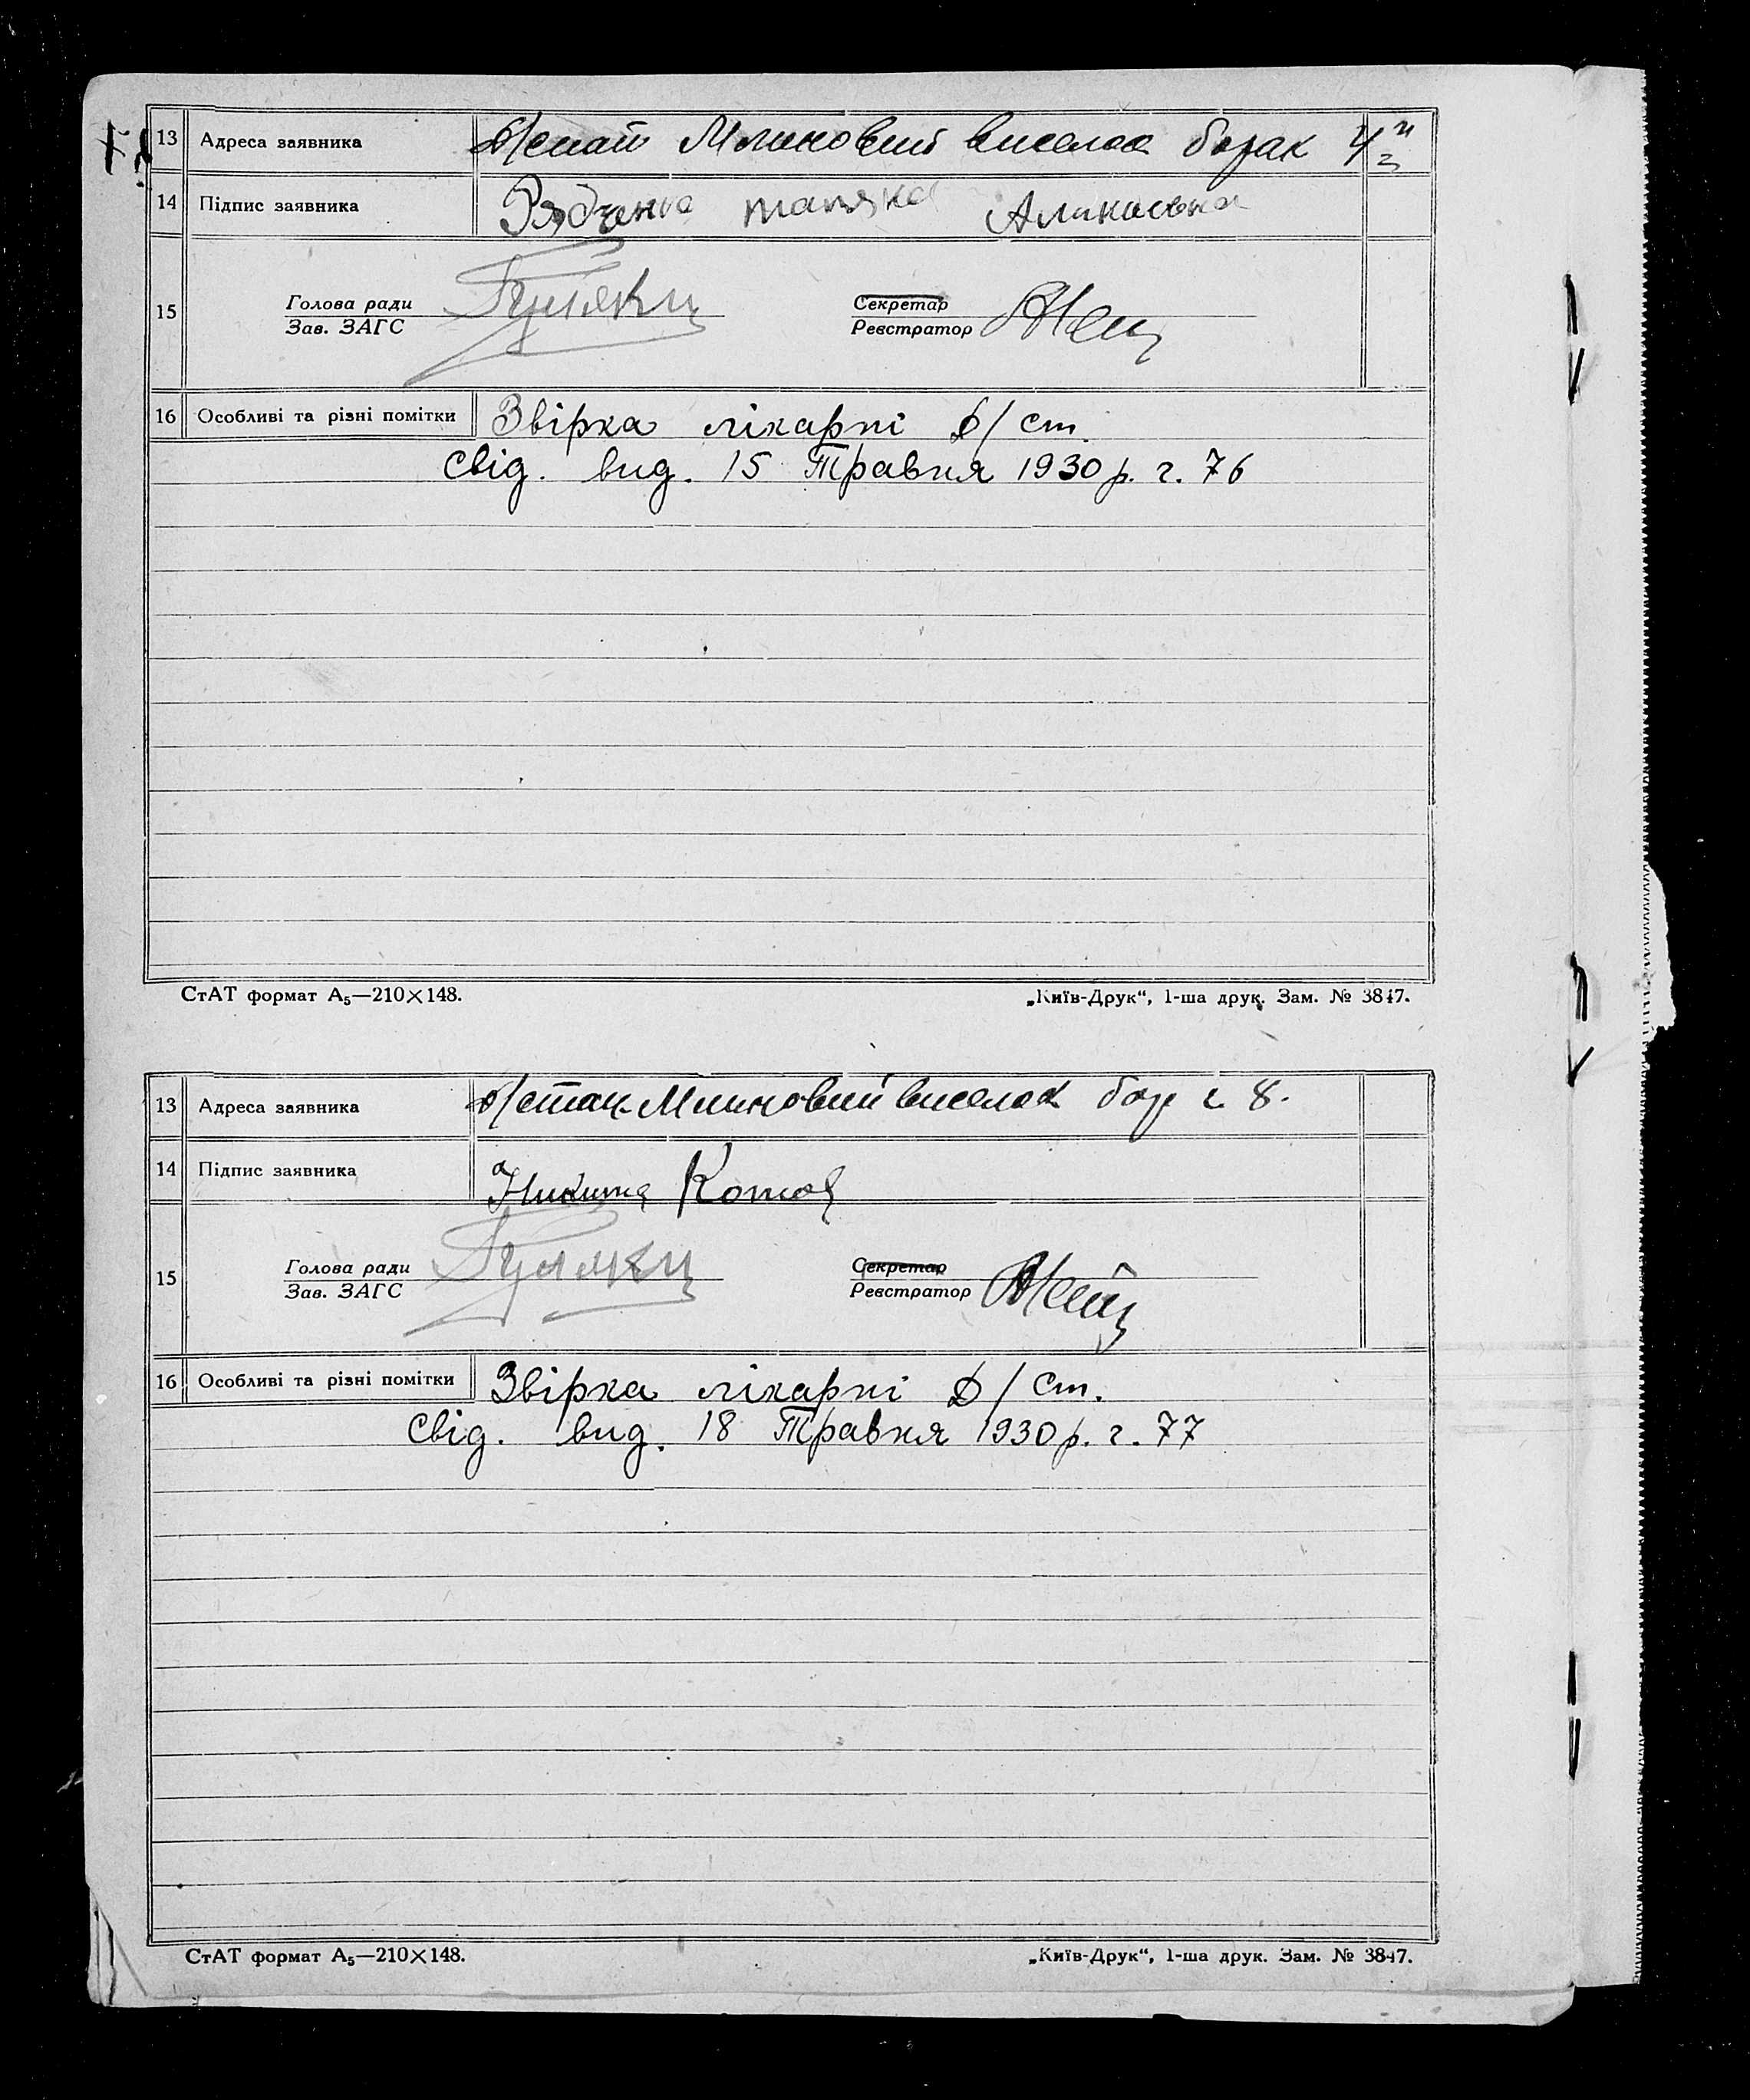 13 Адреса заявника Млиновий виселок барак
14 Підпис заявника
15 Голова ради Секретар
Зав. ЗАГС Реєстратор
16 Особливі та різні помітки Звірка лікарні Д/ст.
Свід. вид. 15 Травня 1930 р. ч. 76
СтАТ формат А5—210×148. „Київ-Друк“, 1-ша друк. Зам. № 3847.
13 Адреса заявника Млиновий виселок бар ч 8.
14 Підпис заявника Никита Котов
15 Голова ради Секретар
Зав. ЗАГС Реєстратор
16 Особливі та різні помітки Звірка лікарні Д/ст.
Свід. вид. 18 Травня 1930 р. ч. 77
СтАТ формат А5—210×148. „Київ-Друк“, 1-ша друк. Зам. № 3847.